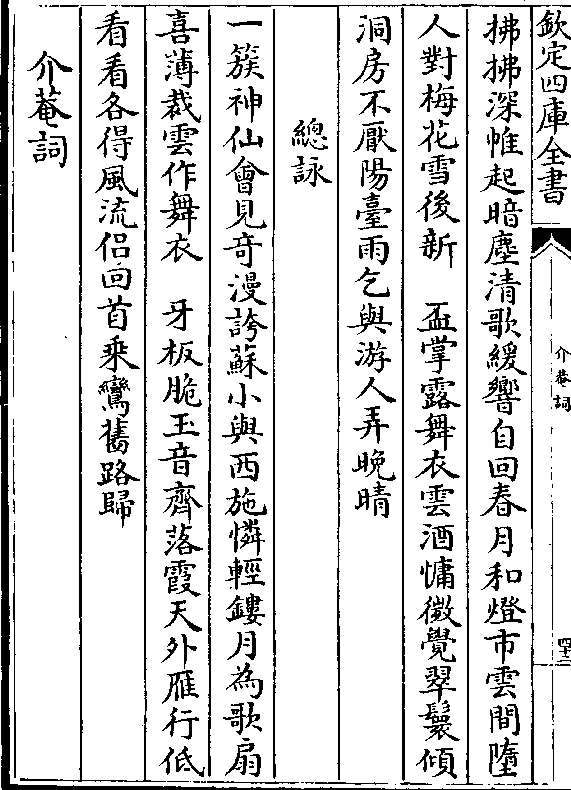 欽定四庫全書
介菴詞
四十三
拂拂深帷起暗塵清歌緩響自回春月和燈市雲間墮
人對梅花雪後新　盃掌露舞衣雲酒慵微覺翠鬟傾
洞房不厭陽臺雨乞與游人弄晚晴
總詠
一簇神仙會見奇漫誇蘇小與西施憐輕鏤月為歌扇
喜薄裁雲作舞衣　牙板脆玉音齊落霞天外雁行低
看看各得風流侣回首乘鸞舊路歸
介菴詞